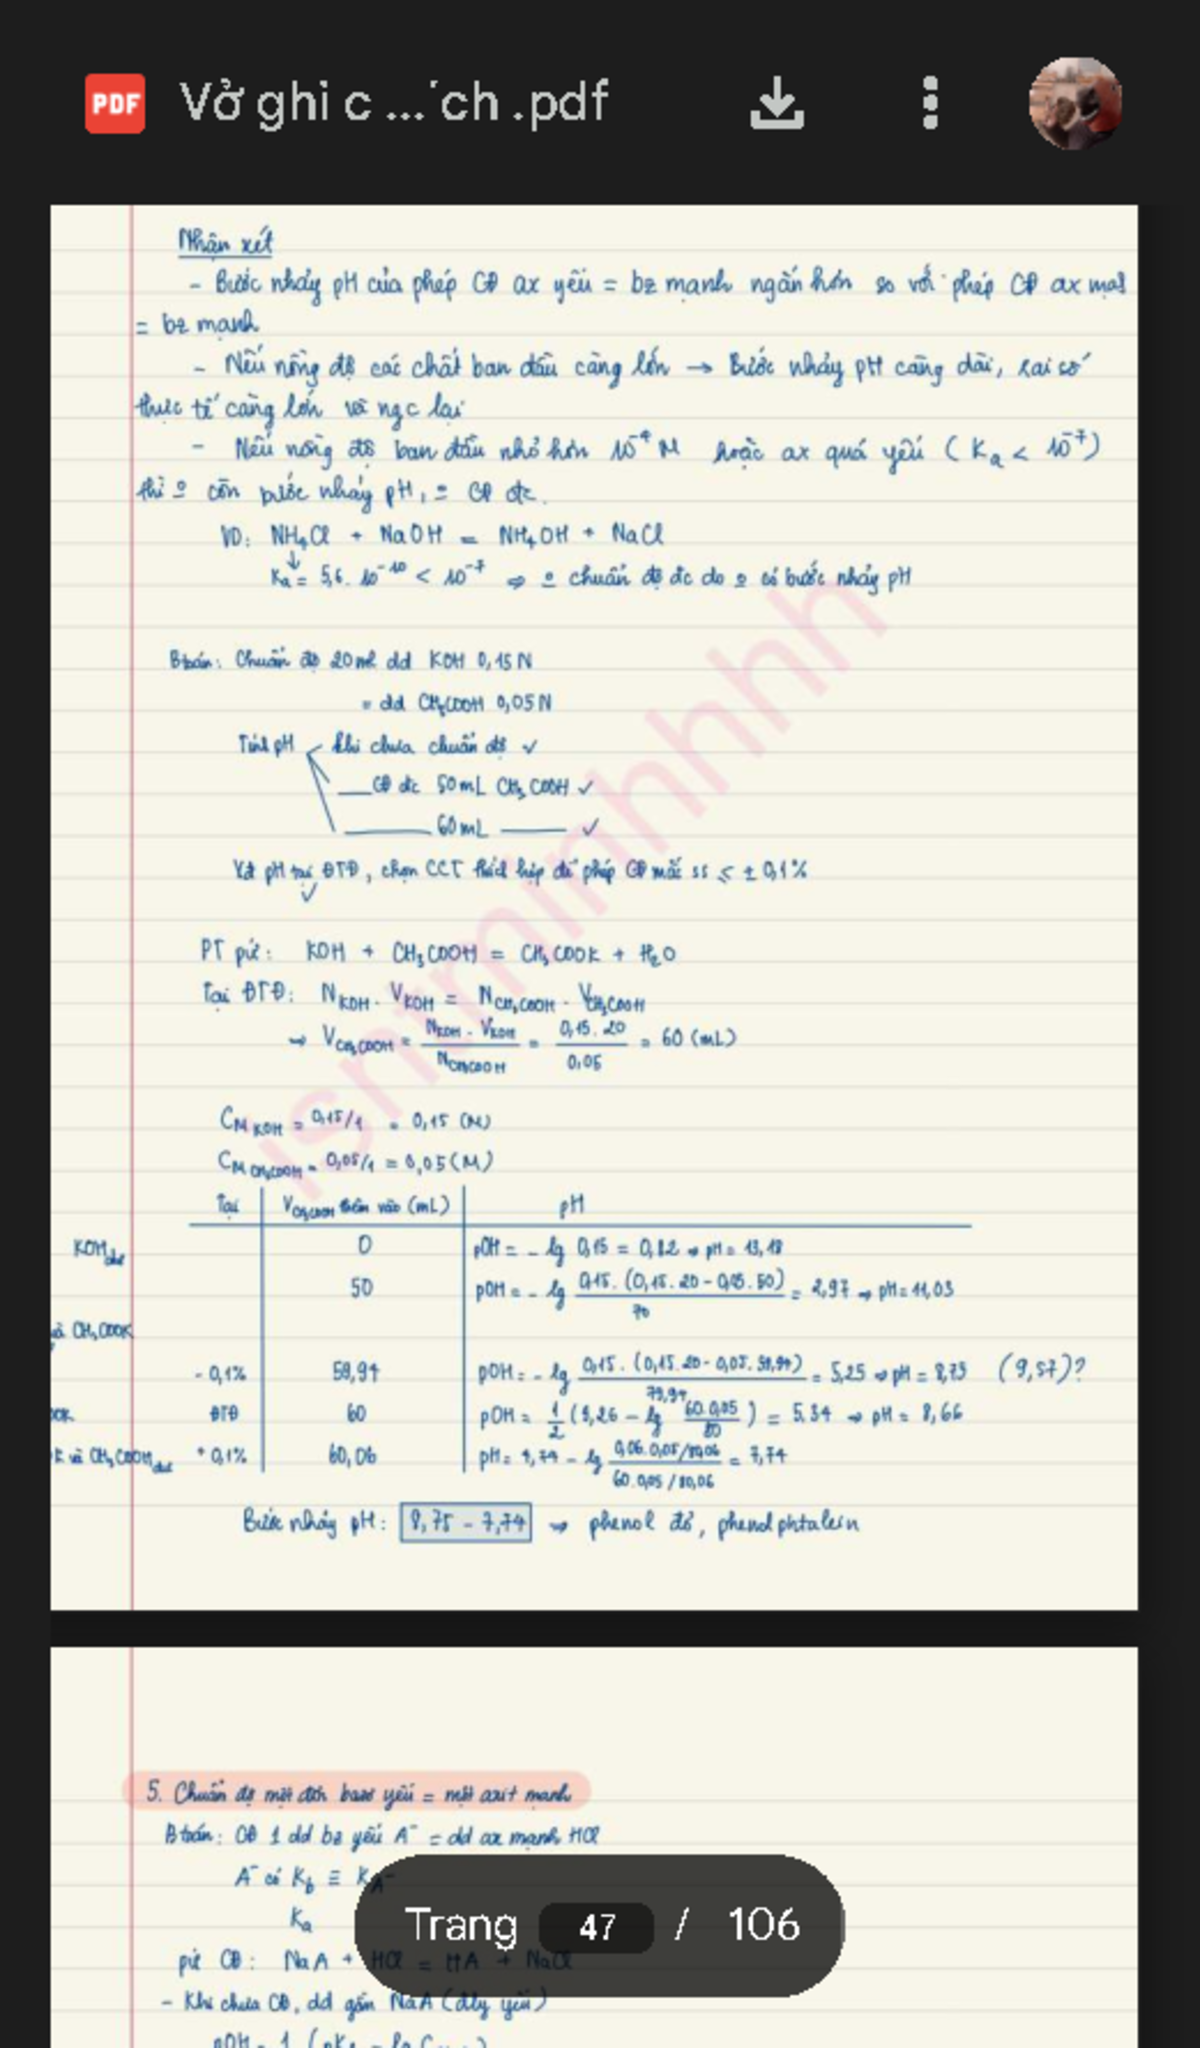 PDF Vở ghi c ... ́ch .pdf
Nhận xét
- Bước nhảy pH của phép CĐ ax yếu = bz mạnh ngắn hơn so với phép CĐ ax mạnh
= bz mạnh
- Nếu nồng độ các chất ban đầu càng lớn → Bước nhảy pH càng dài, sai số
thực tế càng lớn và ngc lại
- Nếu nồng độ ban đầu nhỏ hơn 10⁻⁴ M hoặc ax quá yếu (Ka < 10⁻⁷)
thì o còn bước nhảy pH, = CĐ đc.
VD: NH₄Cl + NaOH = NH₄OH + NaCl
↓
Ka = 5,6. 10⁻¹⁰ < 10⁻⁷ ⇒ o chuẩn độ đc do o có bước nhảy pH
Btoán: Chuẩn độ 20ml dd KOH 0,15N
= dd CH₃COOH 0,05N
Tính pH khi chưa chuẩn độ ✓
CĐ đc 50mL CH₃COOH ✓
60mL ✓
pH tại ĐTĐ, chọn CCT thích hợp để phép CĐ mắc ss ≤ ± 0,1%
✓
PT pứ: KOH + CH₃COOH = CH₃COOK + H₂O
Tại ĐTĐ: N_KOH . V_KOH = N_CH₃COOH . V_CH₃COOH
→ V_CH₃COOH = N_KOH . V_KOH / N_CH₃COOH = 0,15.20 / 0,05 = 60 (mL)
C_M KOH = 0,15/1 = 0,15 (M)
C_M CH₃COOH = 0,05/1 = 0,05 (M)
Tại V_CH₃COOH thêm vào (mL) pH
KOH dư 0 pOH = - lg 0,15 = 0,82 → pH = 13,18
50 pOH = - lg 0,15. (0,15. 20 - 0,05. 50) / 70 = 2,97 → pH = 11,03
và CH₃COOK
- 0,1% 59,94 pOH = - lg 0,15. (0,15. 20 - 0,05. 59,94) / 79,94 = 5,25 → pH = 8,75 (9,57)?
OK ĐTĐ 60 pOH = 1/2 (9,26 - lg 60.0,05 / 80) = 5,34 → pH = 8,66
K và CH₃COOH dư + 0,1% 60,06 pH = 4,74 - lg 0,06.0,05/80,06 / 60.0,05/80,06 = 7,74
Bước nhảy pH: 8,75 - 7,74 → phenol đỏ, phenolphtalein
isniminhhh
5. Chuẩn độ một đơn bazơ yếu = một axit mạnh
Btoán: CĐ 1 dd bz yếu A⁻ = dd ax mạnh HCl
A⁻ có Kb ≡ K_A⁻
Ka
pứ CĐ: NaA + HCl = HA + NaCl
- Khi chưa CĐ, dd gồm NaA (đly yếu)
Trang 47 / 106